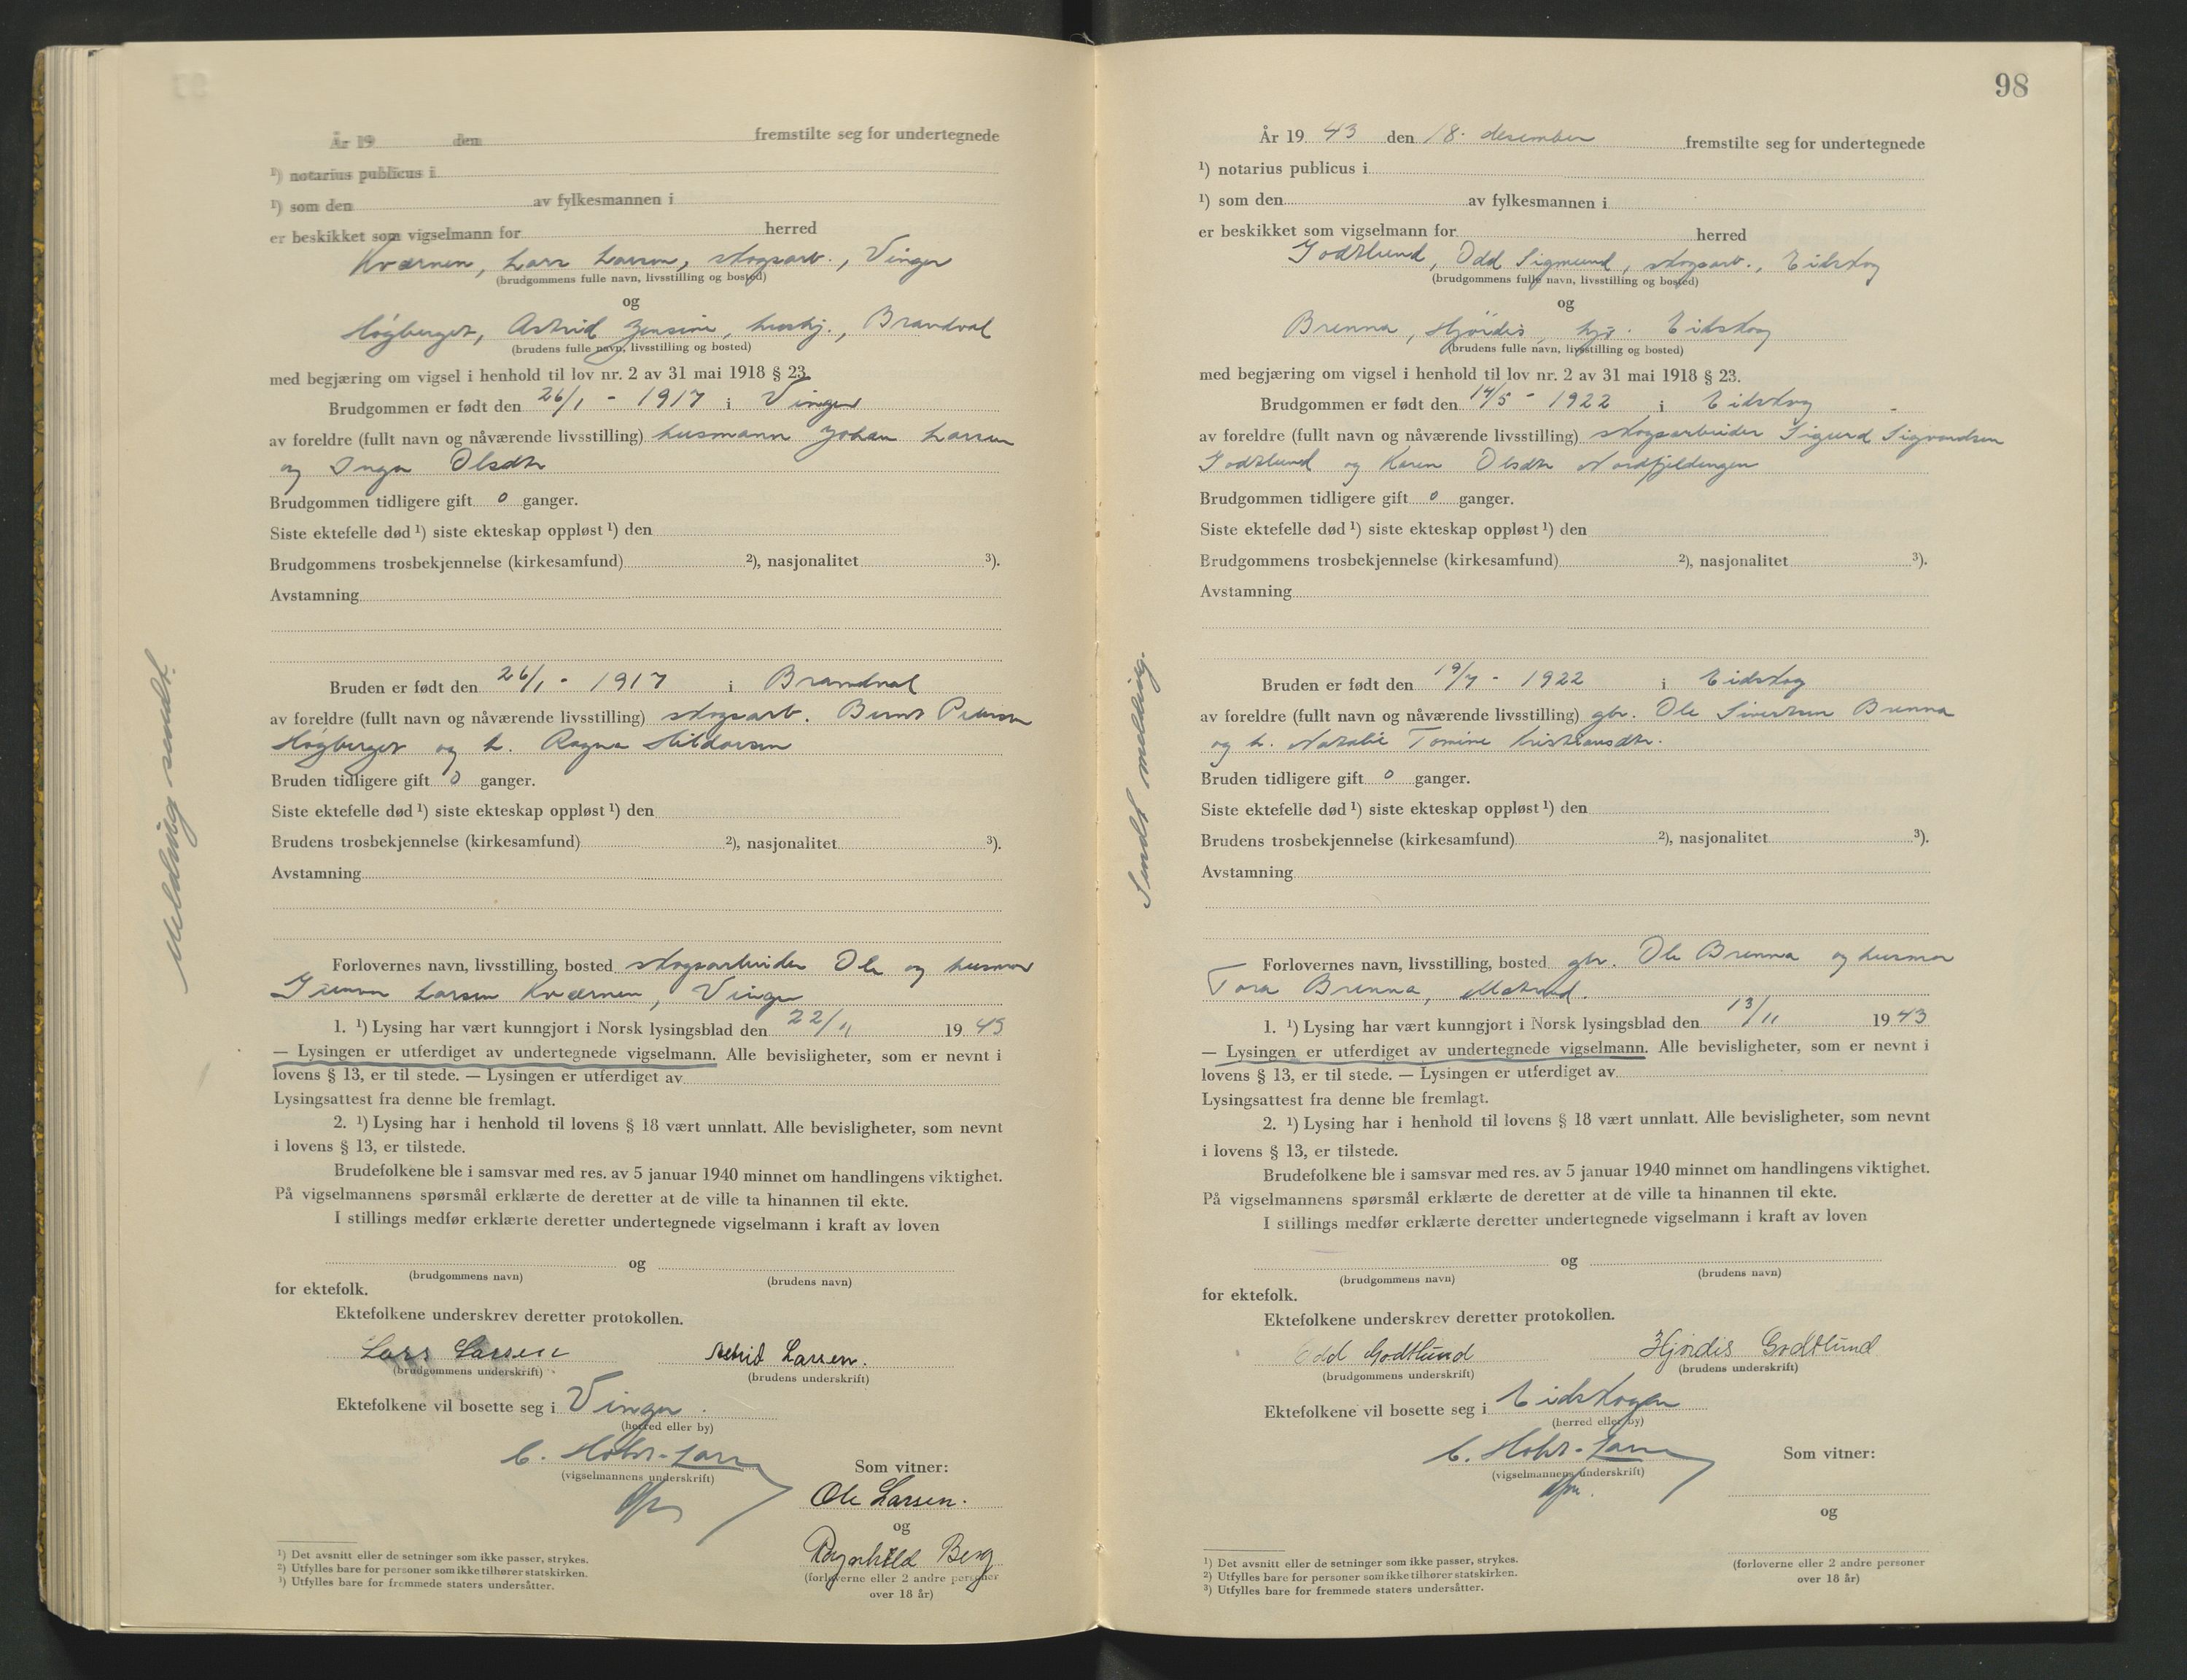 År 19 den fremstilte seg for undertegnede
¹) notarius publicus i
¹) som den av fylkesmannen i
er beskikket som vigselmann for herred
Kværnen, Lars Larsen, skogsarb., Vinger
(brudgommens fulle navn, livsstilling og bosted)
og
Høgberget, Astrid Jensine, hushj., Brandval
(brudens fulle navn, livsstilling og bosted)
med begjæring om vigsel i henhold til lov nr. 2 av 31 mai 1918 § 23.
Brudgommen er født den 26/1 - 1917 i Vinger
av foreldre (fullt navn og nåværende livsstilling) husmann Johan Larsen
og Inga Olsdtr
Brudgommen tidligere gift 0 ganger.
Siste ektefelle død ¹) siste ekteskap oppløst ¹) den
Brudgommens trosbekjennelse (kirkesamfund) ²), nasjonalitet ³).
Avstamning
Bruden er født den 26/1 - 1917 i Brandval
av foreldre (fullt navn og nåværende livsstilling) skogsarb. Bernt Petersen
Høgberget og h. Ragna Hildorsen
Bruden tidligere gift 0 ganger.
Siste ektefelle død ¹) siste ekteskap oppløst ¹) den
Brudens trosbekjennelse (kirkesamfund) ²), nasjonalitet ³).
Avstamning
Melding sendt.
Forlovernes navn, livsstilling, bosted skogsarbeider Ole og husmor
Gunvor Larsen Kværnen, Vinger
1. ¹) Lysing har vært kunngjort i Norsk lysingsblad den 22/11 1943
— Lysingen er utferdiget av undertegnede vigselmann. Alle bevisligheter, som er nevnt i
lovens § 13, er til stede. — Lysingen er utferdiget av
Lysingsattest fra denne ble fremlagt.
2. ¹) Lysing har i henhold til lovens § 18 vært unnlatt. Alle bevisligheter, som nevnt
i lovens § 13, er tilstede.
Brudefolkene ble i samsvar med res. av 5 januar 1940 minnet om handlingens viktighet.
På vigselmannens spørsmål erklærte de deretter at de ville ta hinannen til ekte.
I stillings medfør erklærte deretter undertegnede vigselmann i kraft av loven
og
(brudgommens navn) (brudens navn)
for ektefolk.
Ektefolkene underskrev deretter protokollen.
Lars Larsen Astrid Larsen.
(brudgommens underskrift) (brudens underskrift)
Ektefolkene vil bosette seg i Vinger.
(herred eller by)
C. Hohr-Larsen
(vigselmannens underskrift)
Som vitner:
Ole Larsen.
og
Ragnhild Berg
(forloverne eller 2 andre personer
over 18 år)
¹) Det avsnitt eller de setninger som ikke passer, strykes.
²) Utfylles bare for personer som ikke tilhører statskirken.
³) Utfylles bare for fremmede staters undersåtter.
98
År 1943 den 18. desember fremstilte seg for undertegnede
¹) notarius publicus i
¹) som den av fylkesmannen i
er beskikket som vigselmann for herred
Godtlund, Odd Sigmund, skogsarb., Eidskog
(brudgommens fulle navn, livsstilling og bosted)
og
Brenna, Hjördis, hjv. Eidskog
(brudens fulle navn, livsstilling og bosted)
med begjæring om vigsel i henhold til lov nr. 2 av 31 mai 1918 § 23.
Brudgommen er født den 14/5 - 1922 i Eidskog
av foreldre (fullt navn og nåværende livsstilling) skogsarbeider Sigurd Sigvardsen
Godtlund og Karen Olsdtr Nordfjeldengen
Brudgommen tidligere gift 0 ganger.
Siste ektefelle død ¹) siste ekteskap oppløst ¹) den
Brudgommens trosbekjennelse (kirkesamfund) ²), nasjonalitet ³).
Avstamning
Bruden er født den 19/7 - 1922 i Eidskog
av foreldre (fullt navn og nåværende livsstilling) gbr. Ole Sivertsen Brenna
og h. Natalie Tomine Kristiansdtr.
Bruden tidligere gift 0 ganger.
Siste ektefelle død ¹) siste ekteskap oppløst ¹) den
Brudens trosbekjennelse (kirkesamfund) ²), nasjonalitet ³).
Avstamning
Sendt melding.
Forlovernes navn, livsstilling, bosted gbr. Ole Brenna og husmor
Tora Brenna, Matrand.
1. ¹) Lysing har vært kunngjort i Norsk lysingsblad den 13/11 1943
— Lysingen er utferdiget av undertegnede vigselmann. Alle bevisligheter, som er nevnt i
lovens § 13, er til stede. — Lysingen er utferdiget av
Lysingsattest fra denne ble fremlagt.
2. ¹) Lysing har i henhold til lovens § 18 vært unnlatt. Alle bevisligheter, som nevnt
i lovens § 13, er tilstede.
Brudefolkene ble i samsvar med res. av 5 januar 1940 minnet om handlingens viktighet.
På vigselmannens spørsmål erklærte de deretter at de ville ta hinannen til ekte.
I stillings medfør erklærte deretter undertegnede vigselmann i kraft av loven
og
(brudgommens navn) (brudens navn)
for ektefolk.
Ektefolkene underskrev deretter protokollen.
Odd Godtlund Hjördis Godtlund
(brudgommens underskrift) (brudens underskrift)
Ektefolkene vil bosette seg i Eidskogen
(herred eller by)
C. Hohr-Larsen
(vigselmannens underskrift)
Som vitner:
og
(forloverne eller 2 andre personer
over 18 år)
¹) Det avsnitt eller de setninger som ikke passer, strykes.
²) Utfylles bare for personer som ikke tilhører statskirken.
³) Utfylles bare for fremmede staters undersåtter.